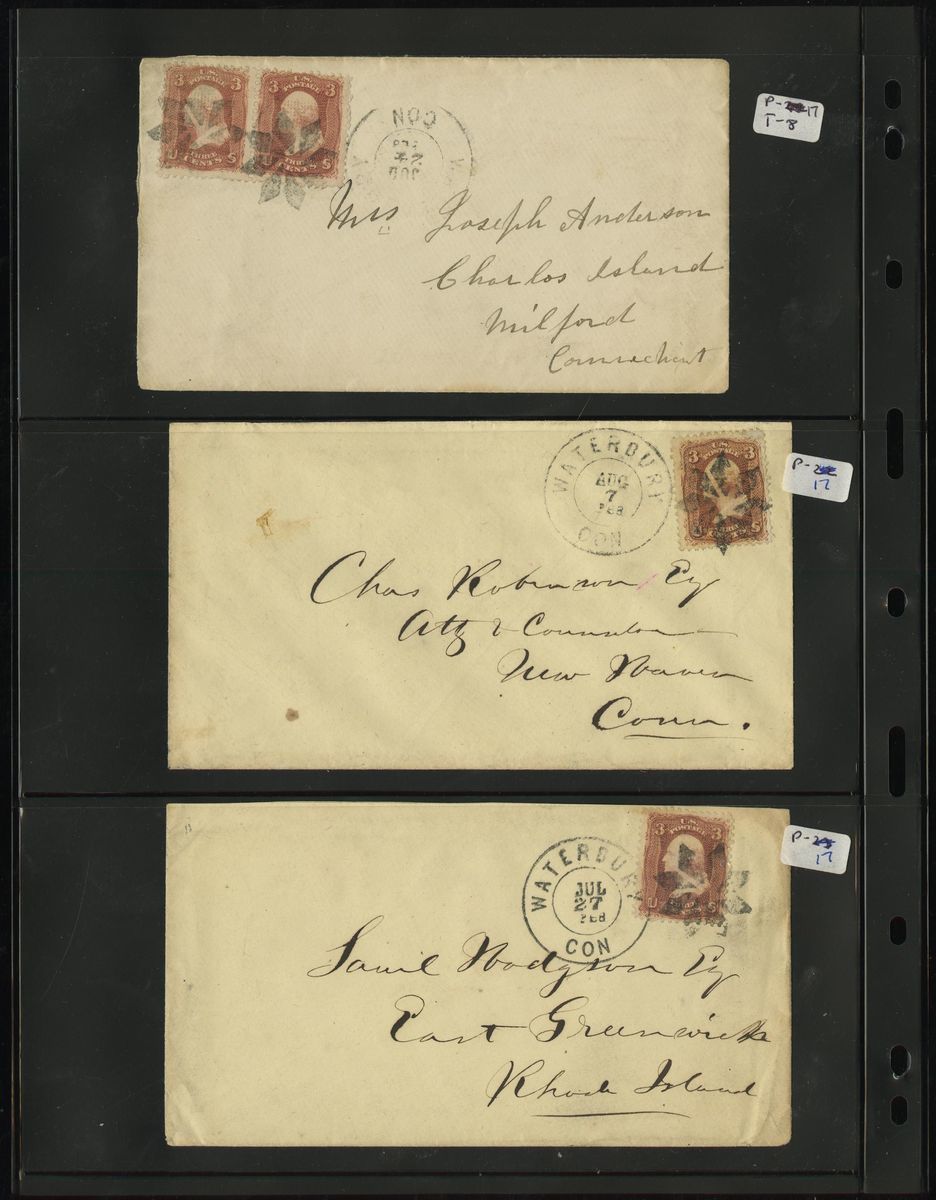 3 U.S. 3
POSTAGE
THREE
U CENTS S
3 U.S. 3
POSTAGE
U CENTS S
CON
24
P-17
T-8
Mrs Joseph Anderson
Charles Island
Milford
Connecticut
WATERBURY
AUG
7
CON
3 U.S. 3
POSTAGE
P-
17
Chas Robinson Esq
Atty & Counselor
New Haven
Conn.
WATERBURY
JUL
27
CON
3 U.S. 3
POSTAGE
U S
P-
17
Saml Hodgson Esq
East Greenwich
Rhode Island